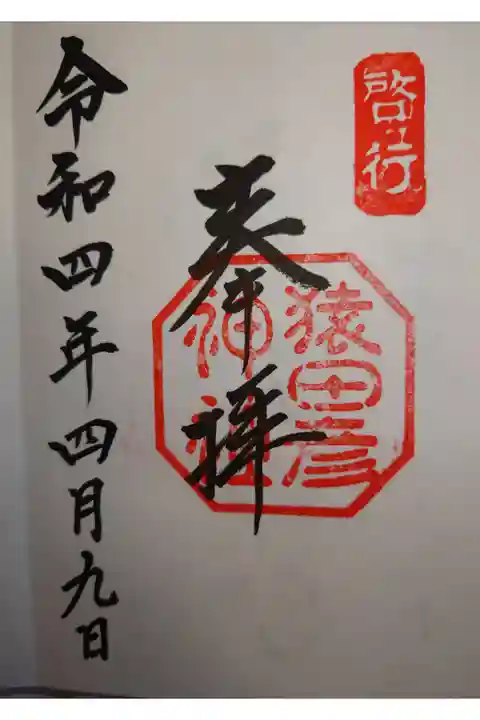 啓行
奉拝
猿田彦
神社
令和四年四月九日